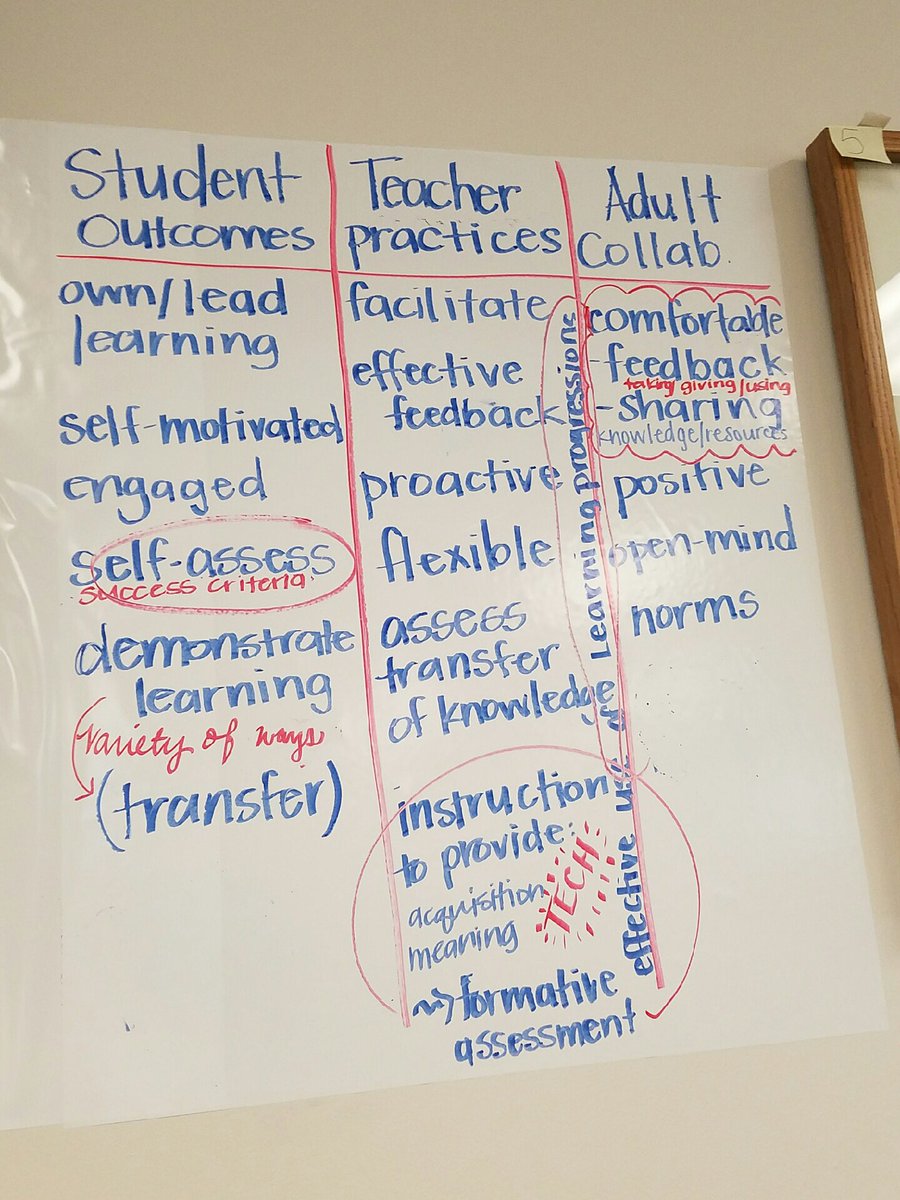 Student
Outcomes
own/lead
learning
self-motivated
engaged
self-assess
success criteria
demonstrate
learning
variety of ways
(transfer)
Teacher
practices
facilitate
effective
feedback
proactive
flexible
assess
transfer
of knowledge
instruction
to provide:
acquisition
meaning
TECH
formative
assessment
effective use of
Learning progressions
Adult
Collab.
comfortable
-feedback
taking/giving/using
-sharing
knowledge/resources
positive
open-mind
norms
5